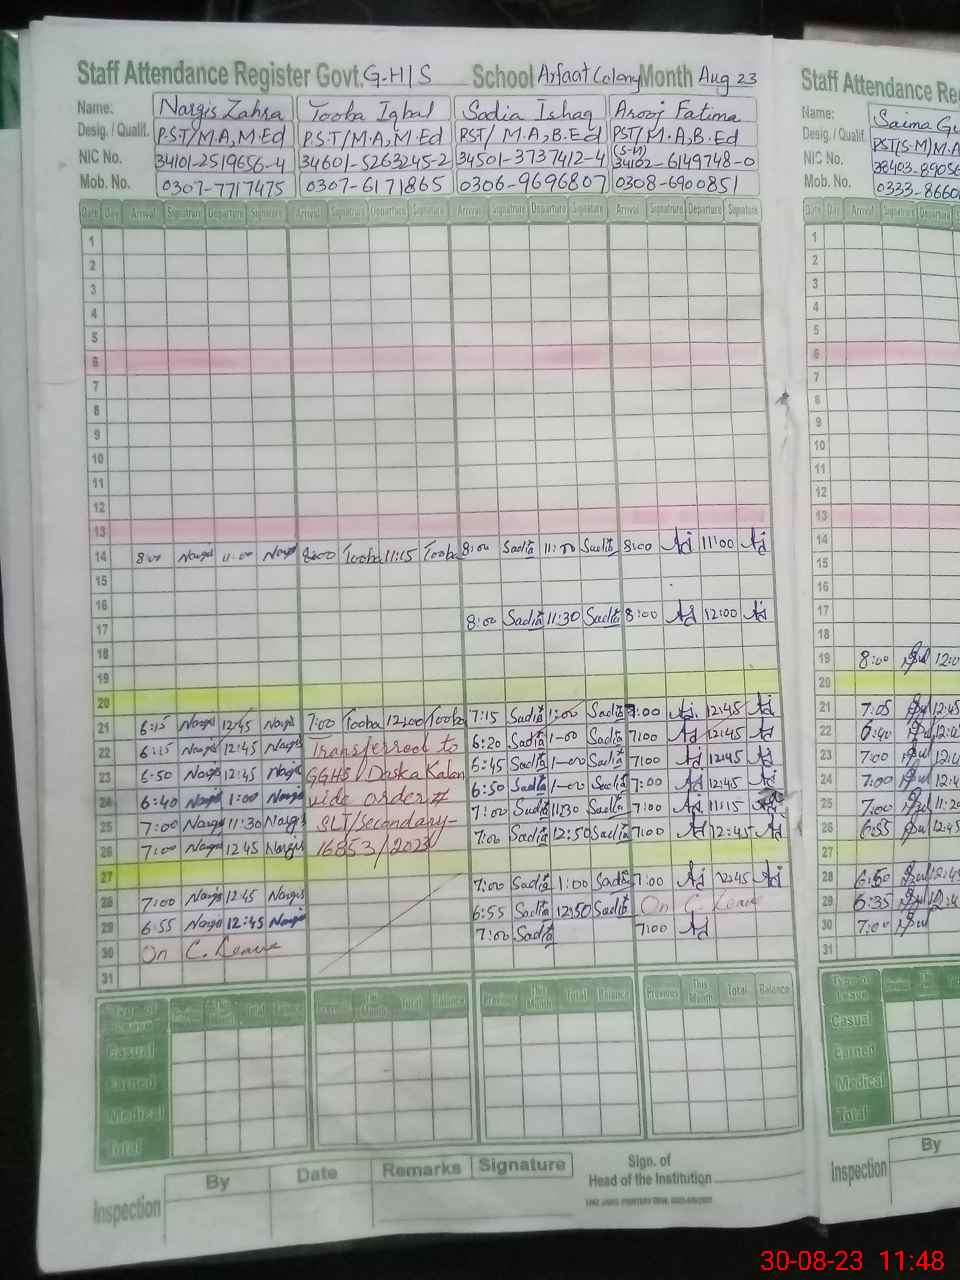 Staff Attendance Register Govt. G.H/S School Arfaat Colany Month Aug 23
Name: Nargis Zahra Tooba Iqbal Sadia Ishaq Arooj Fatima
Desig. / Qualif. P.S.T/M.A, M.Ed P.S.T/M.A, M.Ed PST/ M.A, B.Ed PST/M.A, B.Ed
NIC No. 34101-2519656-4 34601-5263245-2 34501-3737412-4 34102-6149748-0
Mob. No. 0307-7717475 0307-6171865 0306-9696807 0308-6900851
Date Day Arrival Signature Departure Signature Arrival Signature Departure Signature Arrival Signature Departure Signature Arrival Signature Departure Signature
1
2
3
4
5
6
7
8
9
10
11
12
13
14 8:00 Nargis 11:00 Nargis 8:00 Tooba 11:15 Tooba 8:00 Sadia 11:00 Sadia 8:00 11:00
15
16
17 8:00 Sadia 11:30 Sadia 8:00 12:00
18
19
20
21 6:15 Nargis 12:45 Nargis 7:00 Tooba 12:00 Tooba 7:15 Sadia 1:00 Sadia 7:00 12:45
22 6:15 Nargis 12:45 Nargis Transferred to 6:20 Sadia 1-00 Sadia 7:00 12:45
23 6:50 Nargis 12:45 Nargis GGHS Daska Kalan 6:45 Sadia 1-00 Sadia 7:00 12:45
24 6:40 Nargis 1:00 Nargis vide order # 6:50 Sadia 1-00 Sadia 7:00 12:45
25 7:00 Nargis 11:30 Nargis SLT/secondary- 7:00 Sadia 11:30 Sadia 7:00 11:15
26 7:00 Nargis 12 45 Nargis 16853/2023 7:00 Sadia 12:50 Sadia 7:00 12:45
27
28 7:00 Nargis 12:45 Nargis 7:00 Sadia 1:00 Sadia 7:00 12:45
29 6:55 Nargis 12:45 Nargis 6:55 Sadia 12:50 Sadia On C. Leave
30 On C. Leave 7:00 Sadia 7:00
31
Type of Leave Previous This Month Total Balance Previous This Month Total Balance Previous This Month Total Balance Previous This Month Total Balance
Casual
Earned
Medical
Total
Inspection By Date Remarks Signature Sign. of
Head of the Institution
Staff Attendance Re
Name: Saima
Desig. / Qualif. PST(S-M) M.A
NIC No. 38403-89056
Mob. No. 0333-8660
Date Day Arrival Signature Departure
1
2
3
4
5
6
7
8
9
10
11
12
13
14
15
16
17
18
19 8:00
20
21 7:05 12:45
22 6:40
23 7:00
24 7:00
25 7:00
26 6:55 12:45
27
28 6:50
29 6:35
30 7:00
31
Type of Leave
Casual
Earned
Medical
Total
Inspection By
30-08-23 11:48